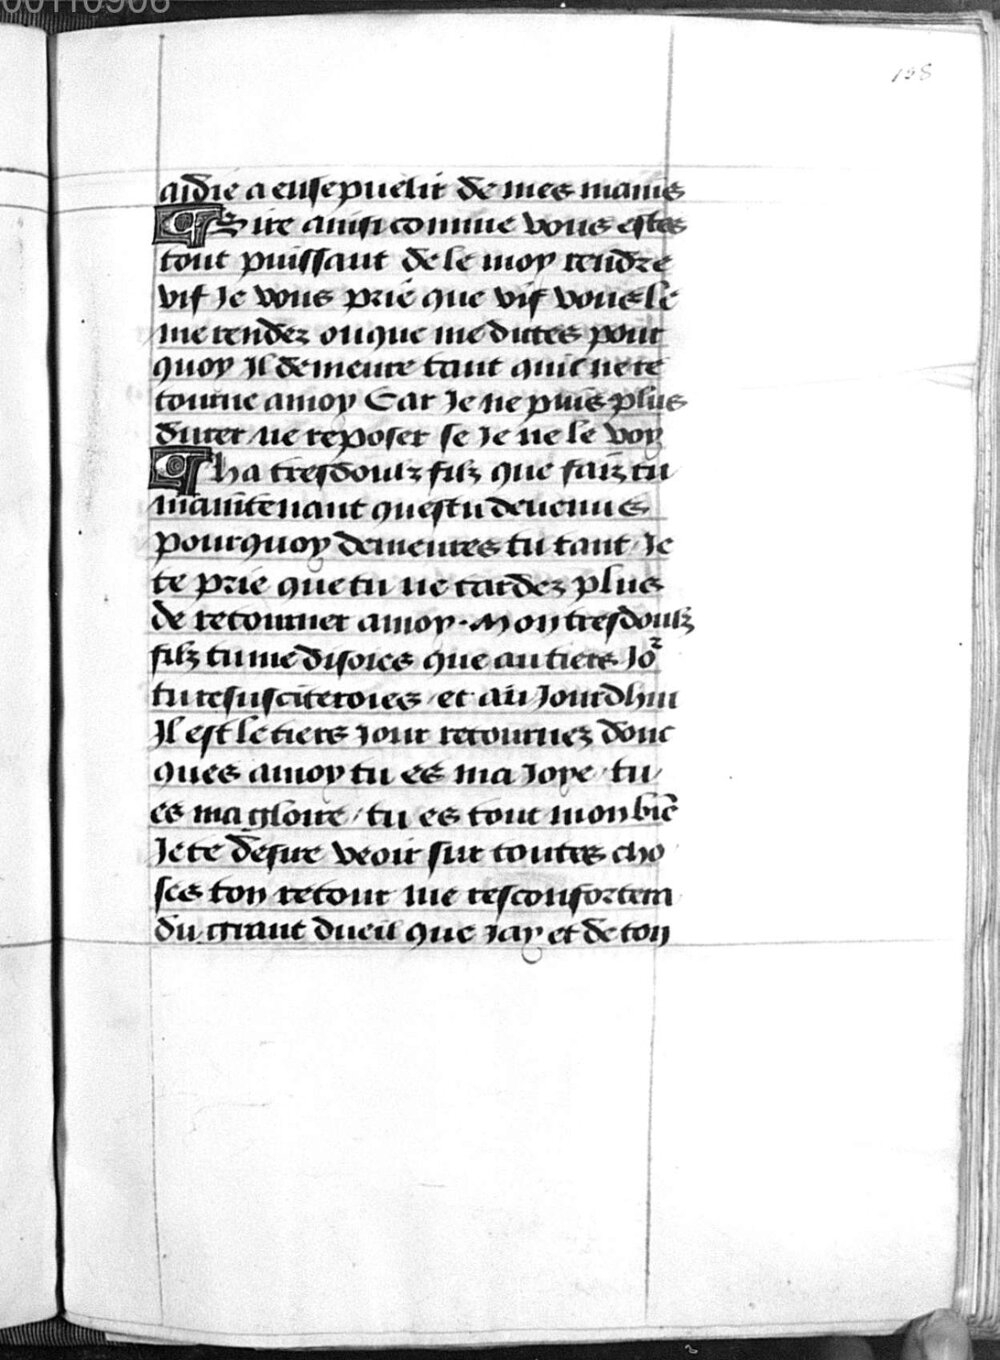 128
aidie a ensepuelir de mes mains
¶ Sire ainsi comme vous estes
tout puissant de le moy rendre
vif Je vous prie que vif vous le
me rendez ou que me dictes pour
quoy Il demeure tant quil ne re
tourne a moy Car Je ne puis plus
durer ne reposer se Je ne le voy
¶ ha tresdoulz filz que faiz tu
maintenant questu devenus
pourquoy demeures tu tant Je
te prie que tu ne tardez plus
de retourner a moy. Mon tresdoulz
filz tu me disoies que au tiers Jor
tu resusciteroies / et au Jourdhui
Il est le tiers Jour retournez donc
ques a moy tu es ma Joye / tu
es ma gloire / tu es tout mon biē
Je te desire veoir sur toutes cho
ses ton retour me resconfortera
du grant dueil que Jay et de ton